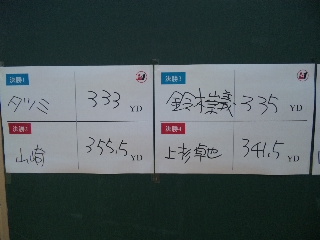 決勝1
タツミ 333 YD
決勝3
鈴木崇義 335 YD
決勝2
山﨑 355.5 YD
決勝4
上杉卓也 341.5 YD